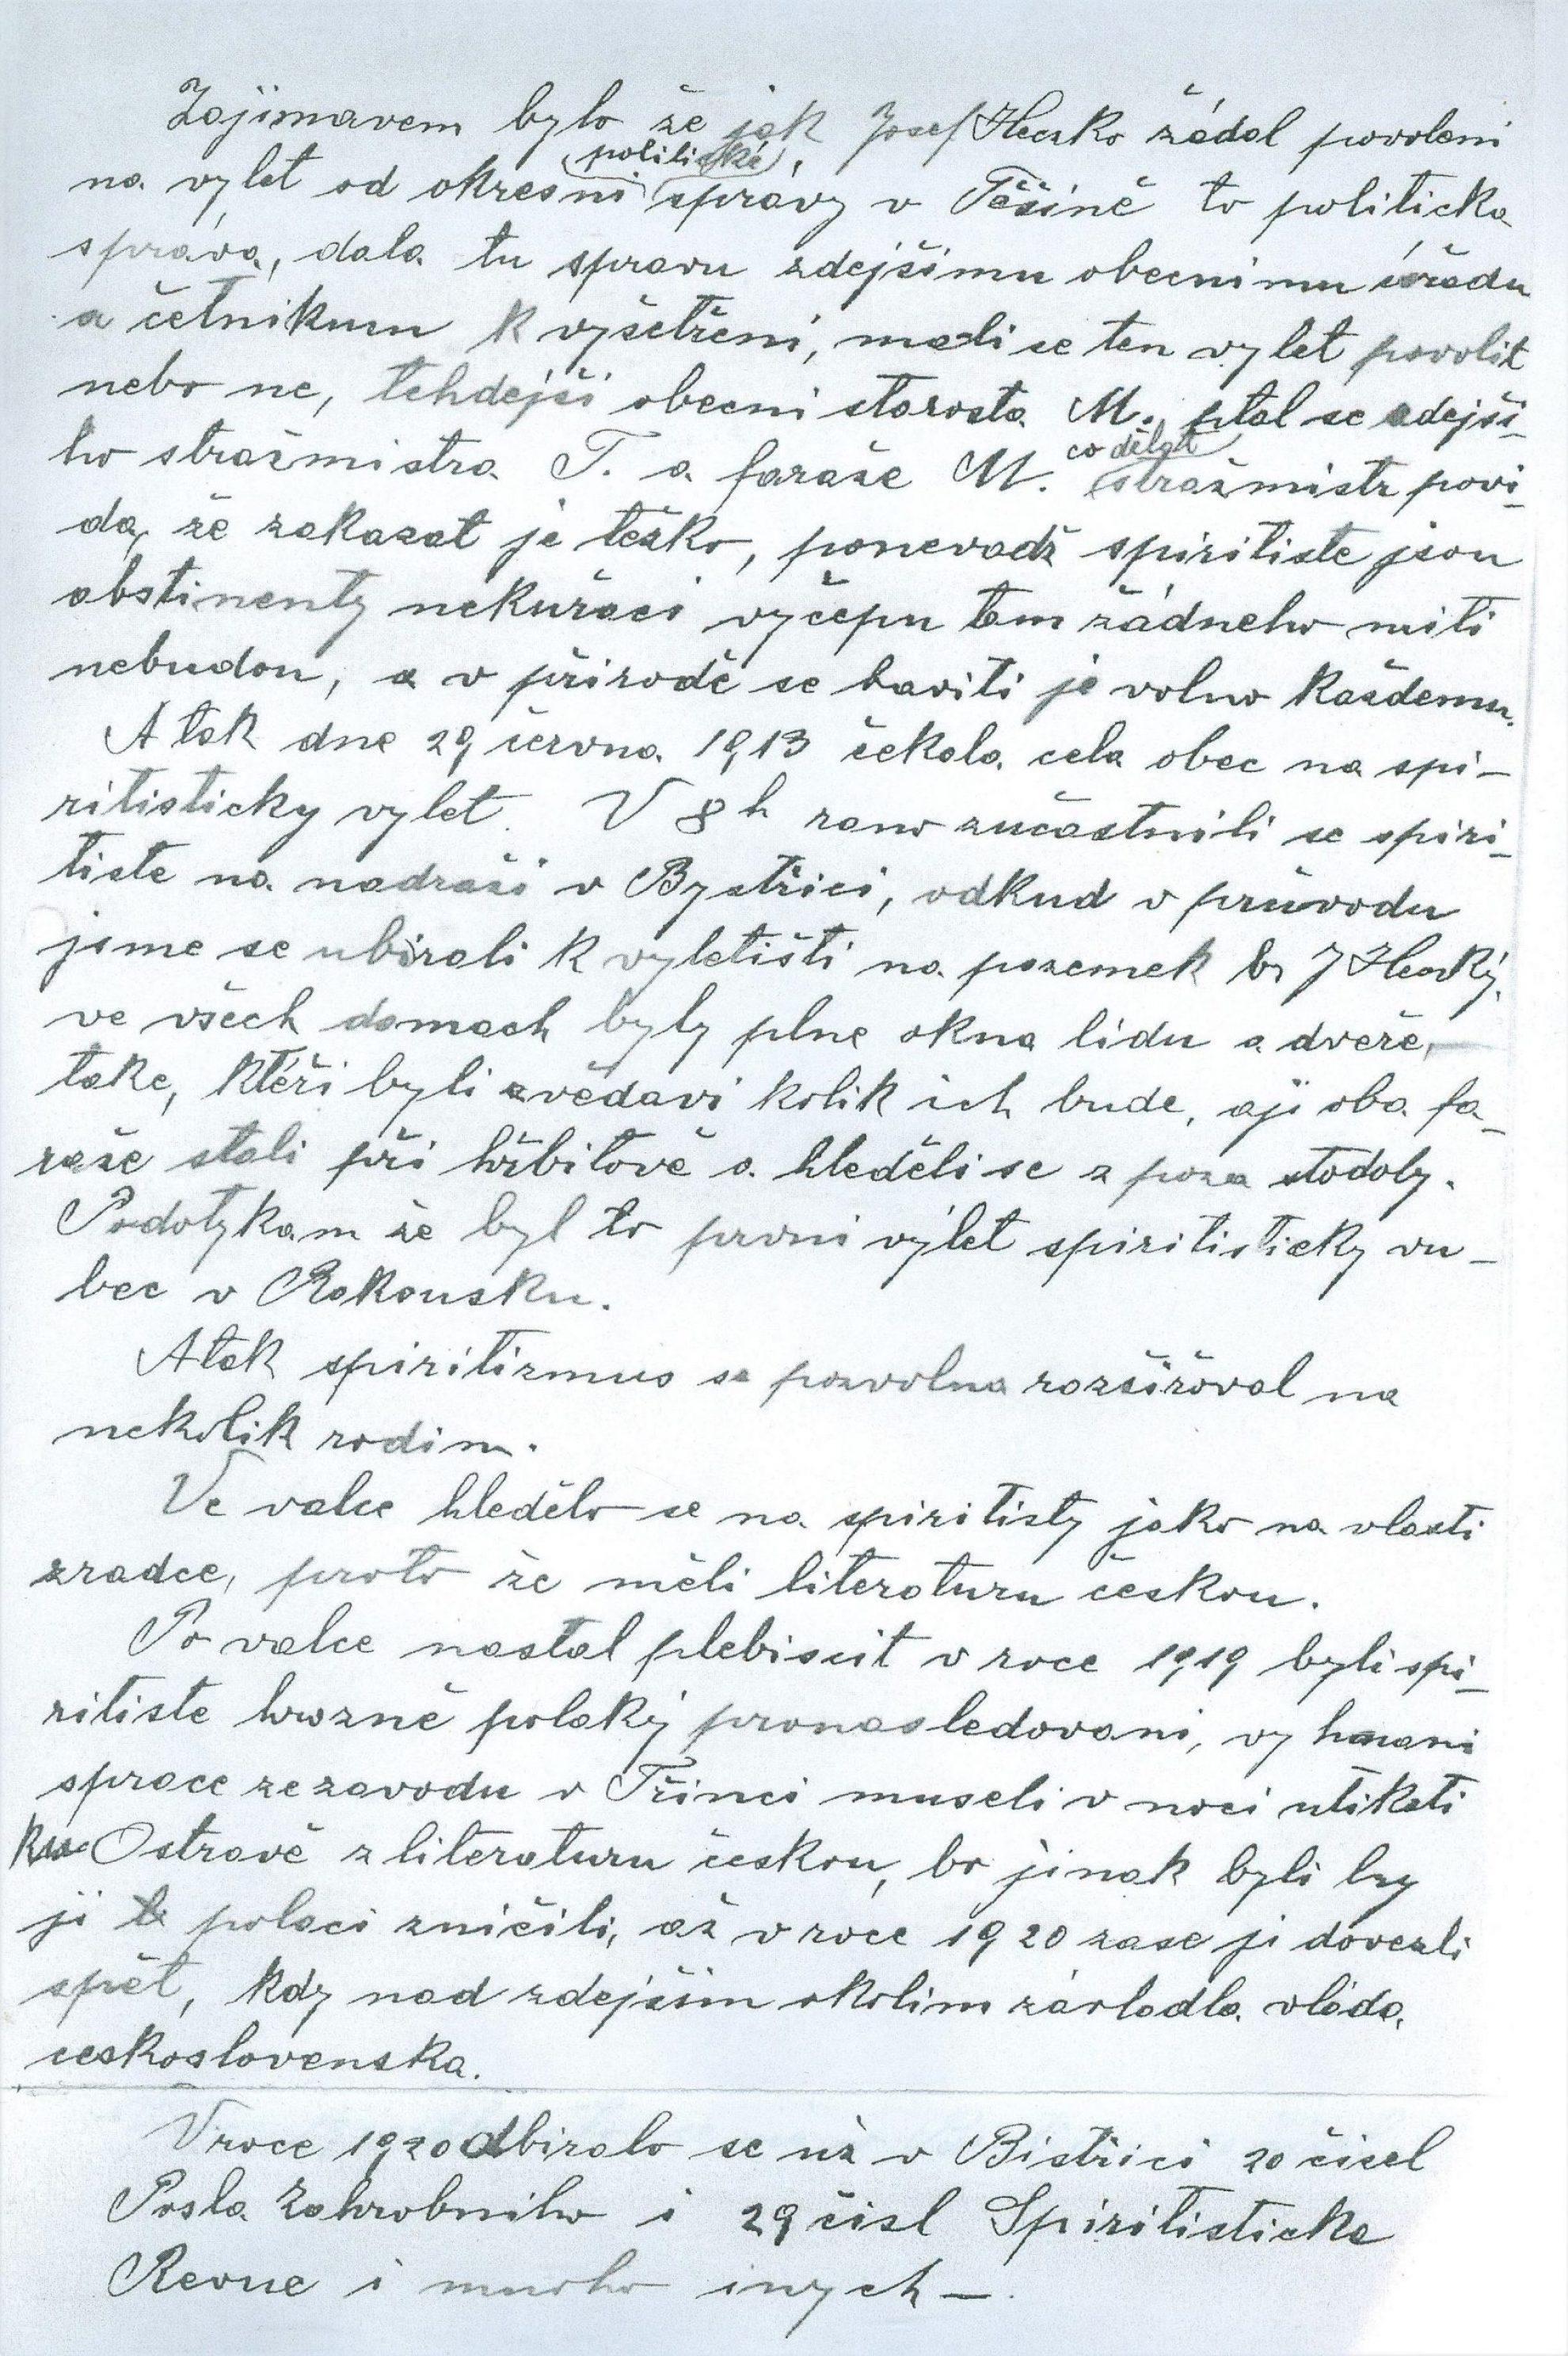 Zajimavem bylo že jak Josef Heczko žádal povoleni
politické
na vylet od okresni správy v Těšině to politicka
správa, dala tu spravu zdejšimu obecnimu úřadu
a četnikum k vyšetřeni, mali se ten vylet povolit
nebo ne, tehdejši obecni starosta M. ptal se zdejši-
co dělat
ho stražmistra T. a faraře M. stražmistr povi-
da, že zakazat je težko, ponevadž spiritiste jsou
abstinenty nekuřaci vyčepu tam žádneho miti
nebudou, a v přirodě se baviti je volno každemu.
A tak dne 29 června 1913 čekala cela obec na spi-
ritisticky vylet. V 8 h rano zučastnili se spiri-
tiste na nadraži v Bystřici, odkud v průvodu
jsme se ubirali k vyletišti na pozemek br J Heczky,
ve všech domach byly plne okna lidu a dveře,
take, kteři byli zvědavi kolik ich bude, aji oba fa-
raře stali při hřbitově a hleděli se z poza stodoly.
Podotykam že byl to prvni výlet spiritisticky vu-
bec v Rakousku.
A tak spiritizmus se pozvolna rozšiřoval na
nekolik rodin.
Ve valce hledělo se na spiritisty jako na vlasti
zradce, proto že měli literaturu českou.
Po valce nastal plebiscit v roce 1919 byli spi-
ritiste hrozně polaky pronasledovani, vy hnani
sprace ze zavodu v Třinci museli v noci utikati
ku Ostravě z literaturu českou, bo jinak byli by
ji polaci zničili, až v roce 1920 zase ji dovezli
spět, kdy nad zdejšim okolim závladla vláda
československa.
V roce 1920 odbiralo se už v Bistřici 20 čisel
Posla Zahrobniho i 29 čisl Spiritisticke
Revue i mnoho inych -